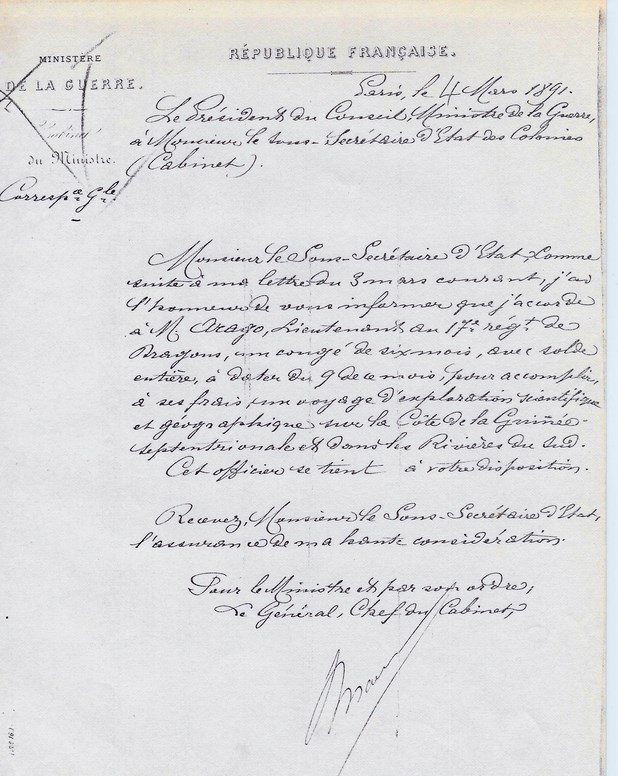 MINISTÈRE
DE LA GUERRE.
Cabinet
du Ministre.
Correspce Gle
RÉPUBLIQUE FRANÇAISE.
Paris, le 4 Mars 1891.
Le Président du Conseil, Ministre de la Guerre,
à Monsieur le Sous-Secrétaire d'Etat des Colonies
(Cabinet).
Monsieur le Sous-Secrétaire d'Etat, Comme
suite à ma lettre du 3 mars courant, j'ai
l'honneur de vous informer que j'accorde
à M. Arago, Lieutenant au 17e régt. de
Dragons, un congé de six mois, avec solde
entière, à dater du 9 de ce mois, pour accomplir,
à ses frais, un voyage d'exploration scientifique
et géographique sur la Côte de la Guinée
septentrionale et dans les Rivières du Sud.
Cet officier se tient à votre disposition.
Recevez, Monsieur le Sous-Secrétaire d'Etat,
l'assurance de ma haute considération.
Pour le Ministre et par son ordre,
Le Général, Chef du Cabinet,